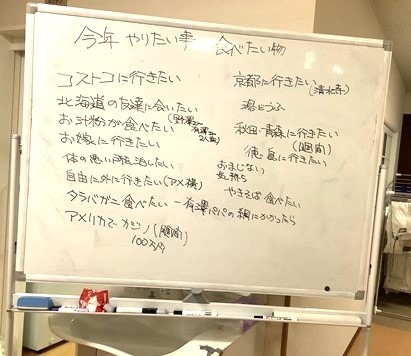 今年 やりたい事 食べたい物
コストコに行きたい
北海道の友達に会いたい
お汁粉が食べたい
お嫁に行きたい
体の悪い所を治したい
自由に外に行きたい(アメ横)
タラバガニ食べたい ー有澤パパの網にかかったら
アメリカでカジノ(1週間)
100万円
京都に行きたい
(清水寺)
湯どうふ
秋田・青森に行きたい
(1週間)
徳島に行きたい
おまじない
気持ち
やきそば食べたい